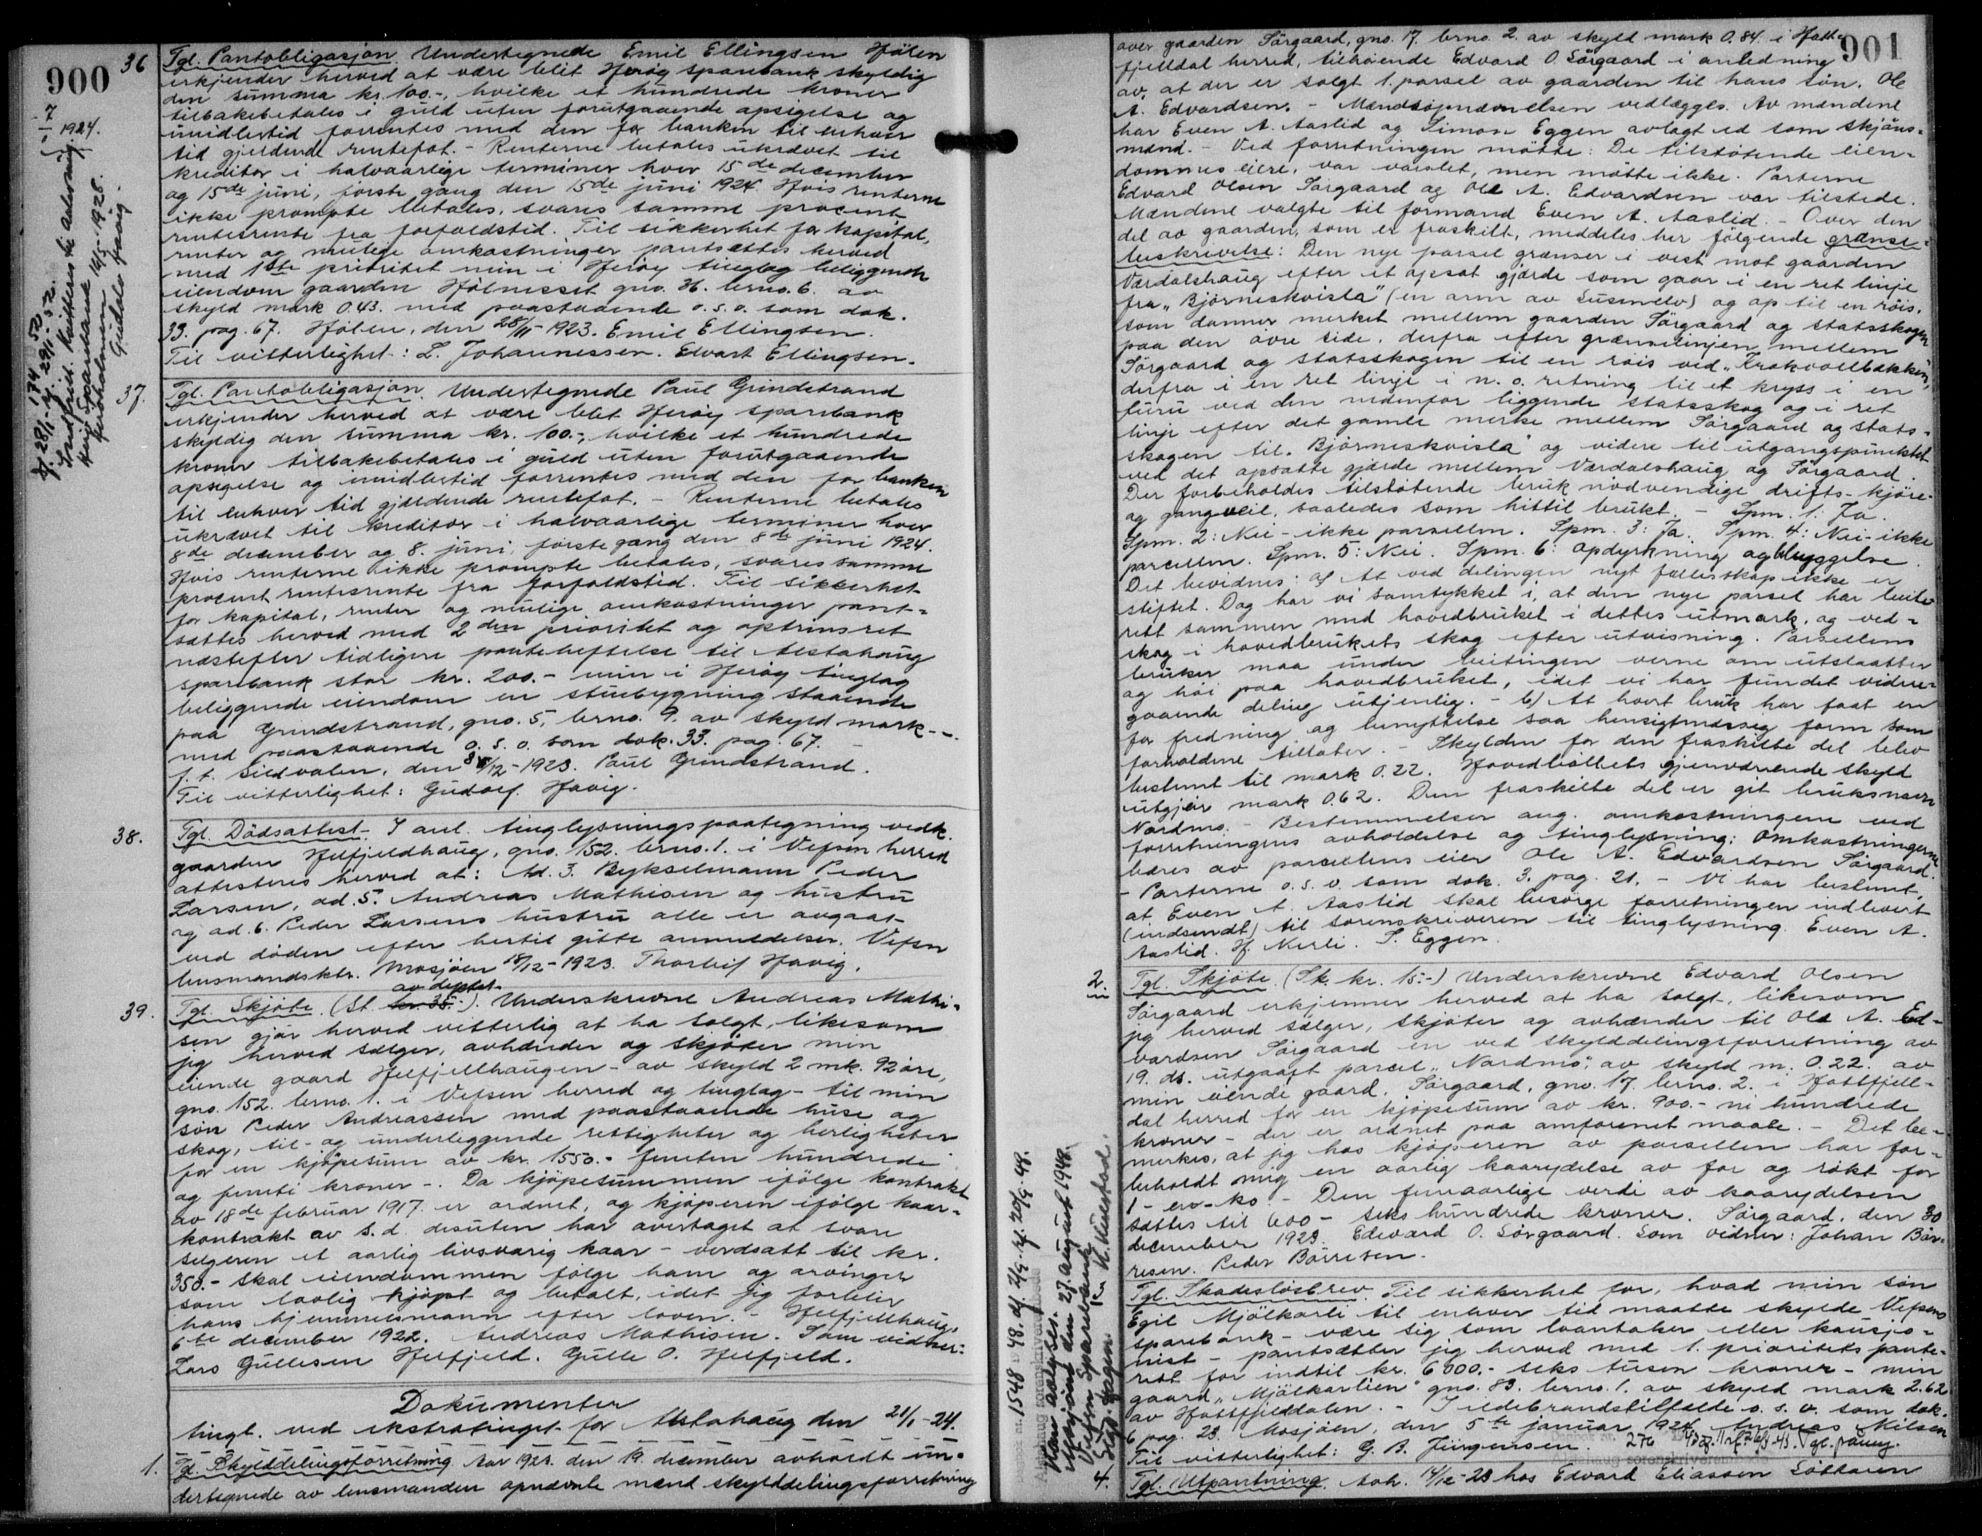 900
7/1 1924.
36 Tgl. Pantobligasjon. Undertegnede Emil Ellingsen Hölen
erkjender herved at være blit Herøy sparebank skyldig
den summa kr. 100.-, hvilke et hundrede kroner
tilbakebetales i guld uten forutgaaende opsigelse og
imidlertid forrentes med den for banken til enhver
tid gjeldende rentefot. - Renterne betales ukrævet til
kreditor i halvaarlige terminer hver 15de december
og 15de juni, første gang den 15de juni 1924. Hvis renterne
ikke prompte betales, svares samme procent
rentesrente fra forfaldstid. Til sikkerhet for kapital,
renter og mulige omkostninger pantsættes herved
med 1ste prioritet min i Herøy tinglag beliggende
eiendom gaarden Hölnesset gno. 36. brno. 6. av
skyld mark 0.43. med paastaaende o.s.v. som dok.
33. pag. 67. Hölen, den 28/11-1923. Emil Ellingsen.
Til vitterlighet: L. Johannessen. Edvart Ellingsen.
37. Tgl. Pantobligasjon. Undertegnede Paul Grindstrand
erkjender herved at være blit Herøy sparebank
skyldig den summa kr. 100.-, hvilke et hundrede
kroner tilbakebetales i guld uten forutgaaende
opsigelse og imidlertid forrentes med den for banken
til enhver tid gjældende rentefot. - Renterne betales
ukrævet til kreditor i halvaarlige terminer hver
8de december og 8. juni, første gang den 8de juni 1924.
Hvis renterne ikke prompte betales, svares samme
procent rentesrente fra forfaldstid. Til sikkerhet
for kapital, renter og mulige omkostninger pant-
sættes herved med 2den prioritet og optrinsret
næstefter tidligere panteheftelse til Alstahaug
sparebank stor kr. 200.- min i Herøy tinglag
beliggende eiendom en stuebygning staaende
paa Grindstrand, gno. 5, brno. 9. av skyld mark -.-
med paastaaende o.s.v. som dok. 33. pag. 67. -
f. t. Sildvalen, den /12-1923. Paul Grindstrand.
Til vitterlighet: Gudolf Havig.
38. Tgl. Dödsattest - I anl. tinglysningspaategning vedk.
gaarden Helfjeldhaug, gno. 152. brno. 1. i Vefsen herred
attesteres herved at: Ad. 3. Bykselmann Peder
Larsen, ad. 5. Andreas Mathisen og hustru
og ad. 6. Peder Larsens hustru alle er avgaat
ved døden efter hertil gitte anmeldelser. Vefsn
lensmandsktr. Mosjøen /12-1923. Thorleif Havig.
39. Tgl. Skjøte. (St. av deptet.). Underskrevne Andreas Mathi-
sen gjør herved vitterlig at ha solgt, likesom
jeg herved sælger, avhænder og skjøter min
eiende gaard Helfjellhaugen - av skyld 2 mk. 92 øre,
gno. 152. brno. 1. i Vefsen herred og tinglag - til min
søn Peder Andreassen med paastaaende huse og
skog, til- og underleggende rettigheter og herligheter
for en kjøpesum av kr. 1550.- femten hundrede
og femti kroner -. Da kjøpesummen ifølge kontrakt
av 18de februar 1917. er ordnet, og kjøperen ifølge kaar-
kontrakt av s.d. desuten har overtaget at svare
selgeren et aarlig livsvarig kaar - verdsatt til kr.
350.- skal eiendommen følge ham og arvinger
som lovlig kjøpt og betalt, idet jeg forblir
hans hjemmelsmann efter loven. - Helfjellhaug,
6te december 1922. Andreas Mathisen. Som vidner:
Lars Gullesen Helfjeld. Gulle O. Helfjeld.
Dokumenter
tingl. ved ekstratinget for Alstahaug den 21/1-24.
1. Tgl. Skylddelingsforretning Aar 1923. den 19. december avholdt un-
dertegnede av lensmanden opnævnte mænd skylddelingsforretning
901
over gaarden Sörgaard, gno. 17. brno. 2. av skyld mark 0.84. i Hatt-
fjelldal herred, tilhørende Edvard O. Sörgaard i anledning
av, at der er solgt 1. parsel av gaarden til hans søn. Ole
A. Edvardsen. - Mændsopnævnelsen vedlægges. Av mændene
har Even A. Aaslid og Simon Eggen avlagt ed som skjöns-
mænd. - Ved forretningen møtte: De tilstøtende eien-
dommes eiere, var varslet, men møtte ikke. Parterne
Edvard Olsen Sörgaard og Ole A. Edvardsen var tilstede.
Mændene valgte til formand Even A. Aaslid. - Over den
del av gaarden, som er fraskilt, meddeles her følgende grænse-
beskrivelse: Den nye parsel grænser i vest mot gaarden
Værdalshaug efter et opsat gjærde som gaar i en ret linje
fra "Björneskvisla" (en arm av Susenelv) og op til en røis,
som danner merket mellem gaarden Sörgaard og statsskogen
paa den øvre side, derfra efter grænselinjen mellem
Sörgaard og statsskogen til en røis ved "Krokvollbækken",
derfra i en ret linje i n. o. retning til et kryss i en
furu ved den nedenfor liggende statsskog og i ret
linje efter det gamle merke mellem Sörgaard og stats-
skogen til "Björneskvisla" og videre til utgangspunktet
ved det opsatte gjærde mellem Værdalshaug og Sörgaard.
Der forbeholdes tilstøtende bruk nødvendige drifts- kjøre-
og gangveie, saaledes som hittil brukt. - Spm. 1: Ja.
Spm. 2: Nei - ikke parsellen. Spm. 3: Ja. Spm. 4: Nei - ikke
parsellen. Spm. 5: Nei. Spm. 6: Opdyrkning og bebyggelse.
Det bevidnes: a) At ved delingen nyt fællesskap ikke er
stiftet. Dog har vi samtykket i, at den nye parsel har beite-
rett sammen med hovedbruket i dettes utmark, og ved-
skog i hovedbrukets skog efter utvisning. Parsellens
bruker maa under beitingen verne om utslaatter
og höi paa hovedbruket, idet vi har fundet videre-
gaaende deling utjenlig. - b) At hvert bruk har faat en
for fredning og benyttelse saa hensigtmæssig form som
forholdene tillater. - Skylden for den fraskilte del blev
bestemt til mark 0.22. Hovedbølets gjenværende skyld
utgjør mark 0.62. Den fraskilte del er git bruksnavn
Nordmo. - Bestemmelser ang. omkostningene ved
forretningens avholdelse og tinglysning: Omkostningerne
bæres av parsellens eier Ole A. Edvardsen Sörgaard.
- Parterne o.s.v. som dok. 3. pag. 21. - Vi har bestemt,
at Even A. Aaslid skal besørge forretningen indlevert
(indsendt) til sorenskriveren til tinglysning. Even A.
Aaslid. H. Nerli. S. Eggen.
2. Tgl. Skjøte. (St. kr. 15.-) Underskrevne Edvard Olsen
Sörgaard erkjenner herved at ha solgt, likesom
jeg herved sælger, skjøter og avhænder til Ole A. Ed-
vardsen Sörgaard en ved skylddelingsforretning av
19. ds. utgaaet parcel "Nordmo", av skyld m. 0.22. av
min eiende gaard, Sörgaard, gno. 17. brno. 2. i Hattfjell-
dal herred for en kjøpesum av kr. 900.- ni hundrede
kroner - der er ordnet paa omforenet maate. - Det be-
merkes, at jeg hos kjøperen av parsellen har for-
beholdt mig en aarlig kaarydelse av for og røkt for
1 - en - ko - Den femaarlige verdi av kaarydelsen
sættes til 600 - seks hundrede kroner. Sörgaard, den 30
december 1923. Edvard O. Sörgaard. Som vidner: Johan Bör-
resen. Peder Börresen.
Tgl. Skadeslösbrev. Til sikkerhet for, hvad min søn
Egil Mjölkarli til enhver tid maatte skylde Vefsen
sparebank - være sig som laantaker eller kausjo-
nist - pantsætter jeg herved med 1. prioritets pante-
rett for indtil kr. 6000.- seks tusen kroner - min
gaard "Mjölkarlien" gno. 83. brno. 1. av skyld mark 2.62
av Hattfjelldalen. - Ildebrandstilfælde o.s.v. som dok.
6 pag. 23. Mosjøen, den 5te januar 1924. Andreas Nilsen
Til vitterlighet: G. B. Jürgensen.
4. Tgl. Utpantning. Aoh. 14/12-23 hos Edvard Eliassen Søttaren